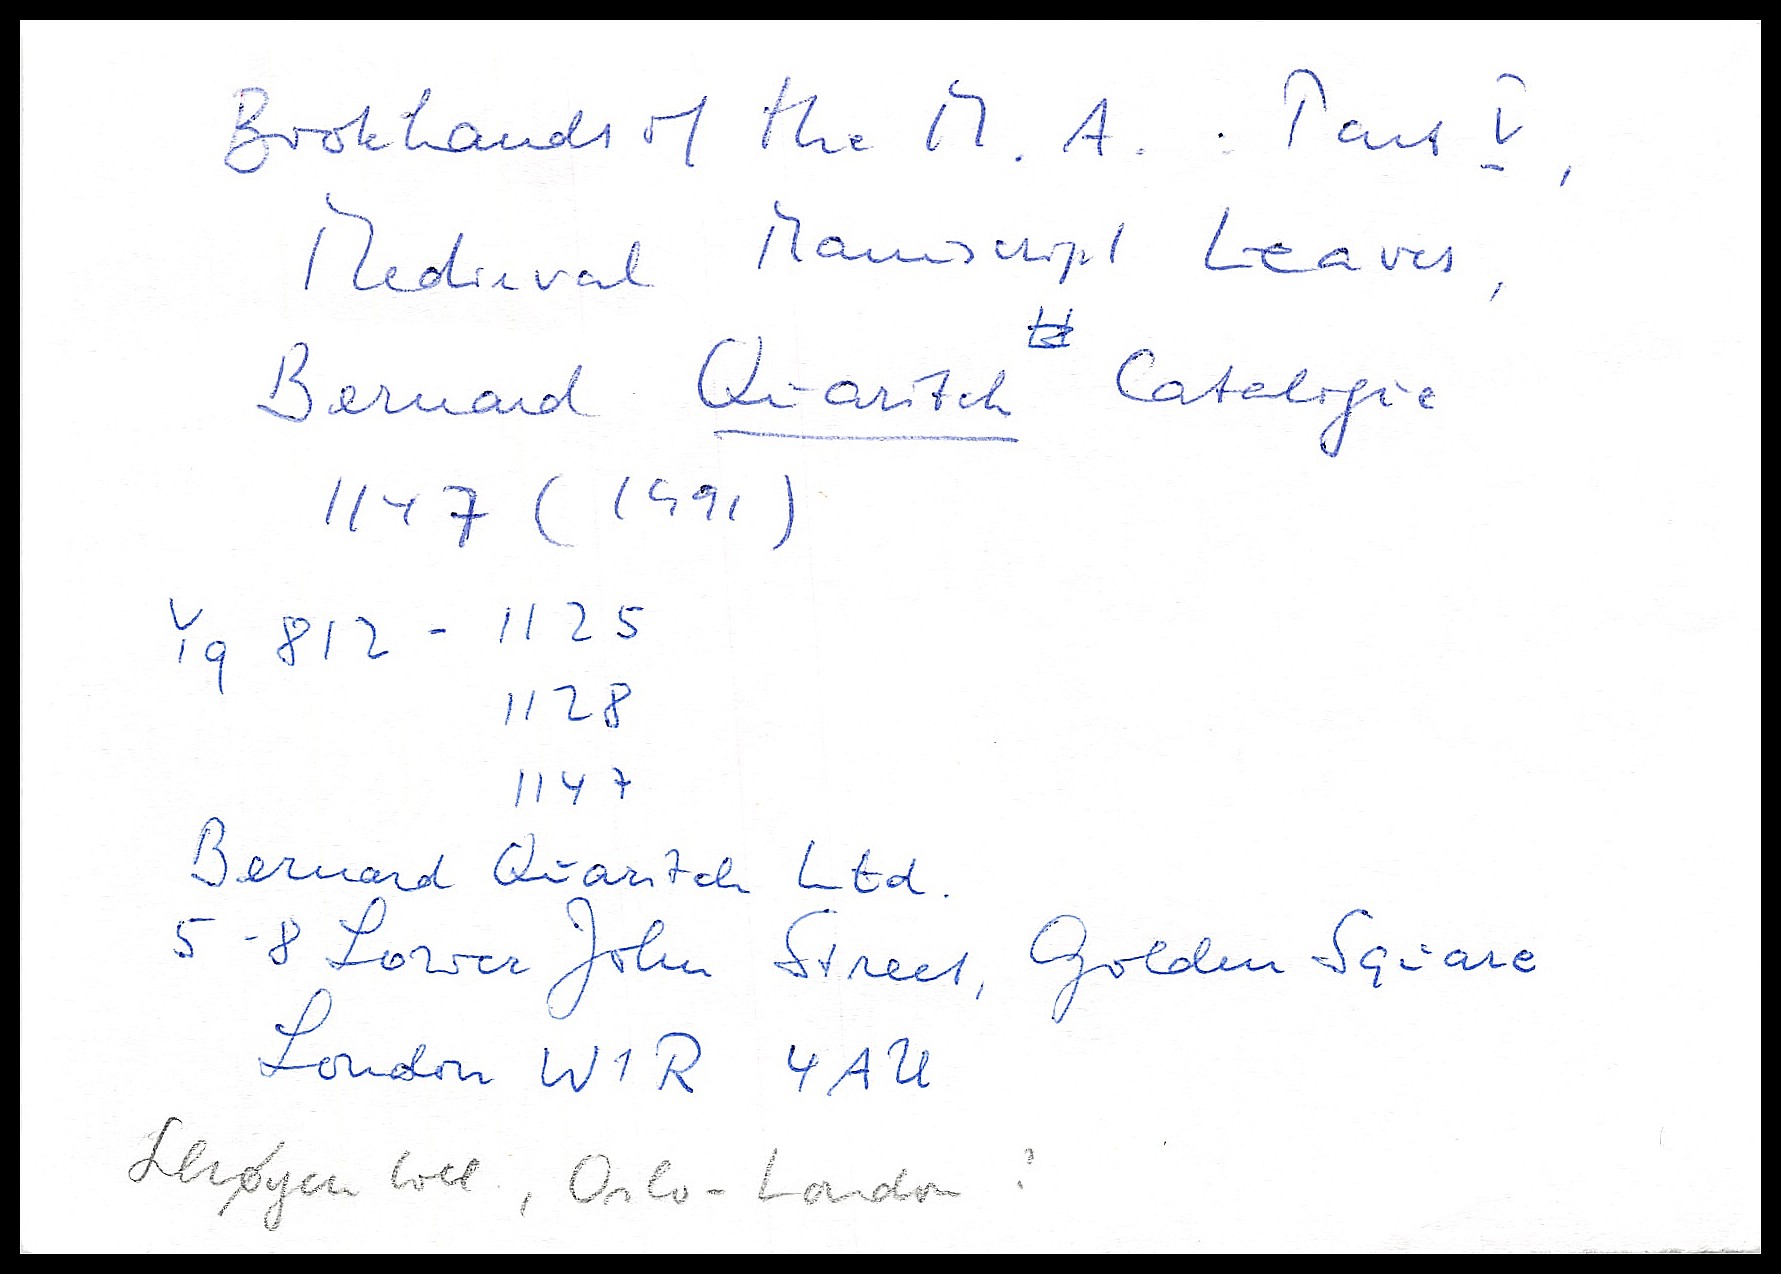 Bookhands of the M. A. : Part V,
Medieval Manuscript Leaves,
Bernard Quaritch Catalogue
1147 (1991)
Yq 812 - 1125
1128
1147
Bernard Quaritch Ltd.
5-8 Lower John Street, Golden Square
London W1R 4AU
Schøyen Coll., Oslo-London ?